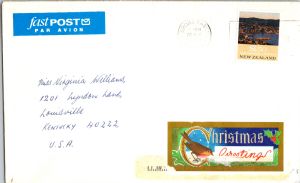 fastPOST
PAR AVION
NEW ZEALAND
Miss Virginia Williams,
1201 Lyndon Lane,
Louisville
KENTUCKY 40222
U.S.A.
Christmas
Greetings